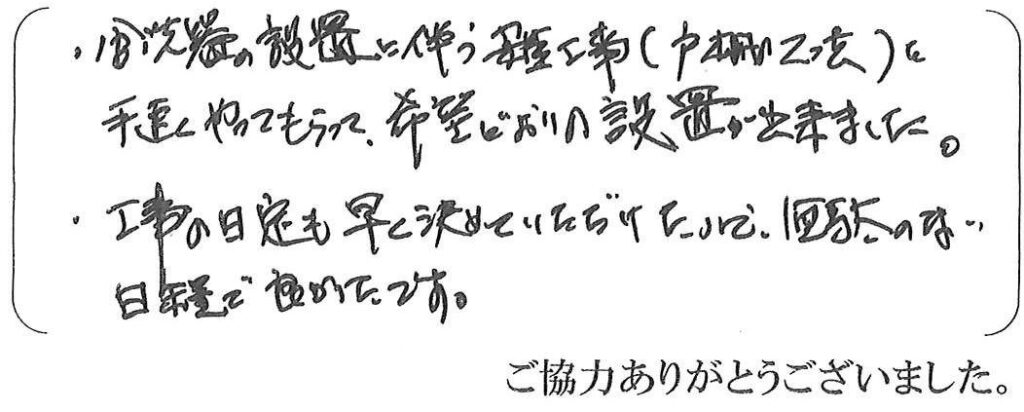 ・食洗器の設置に伴う各種工事(戸棚の工法)に
手速くやってもらって、希望どおりの設置が出来ました。
・工事の日定も早く決めていただけたので、無駄のない
日程で良かったです。
ご協力ありがとうございました。